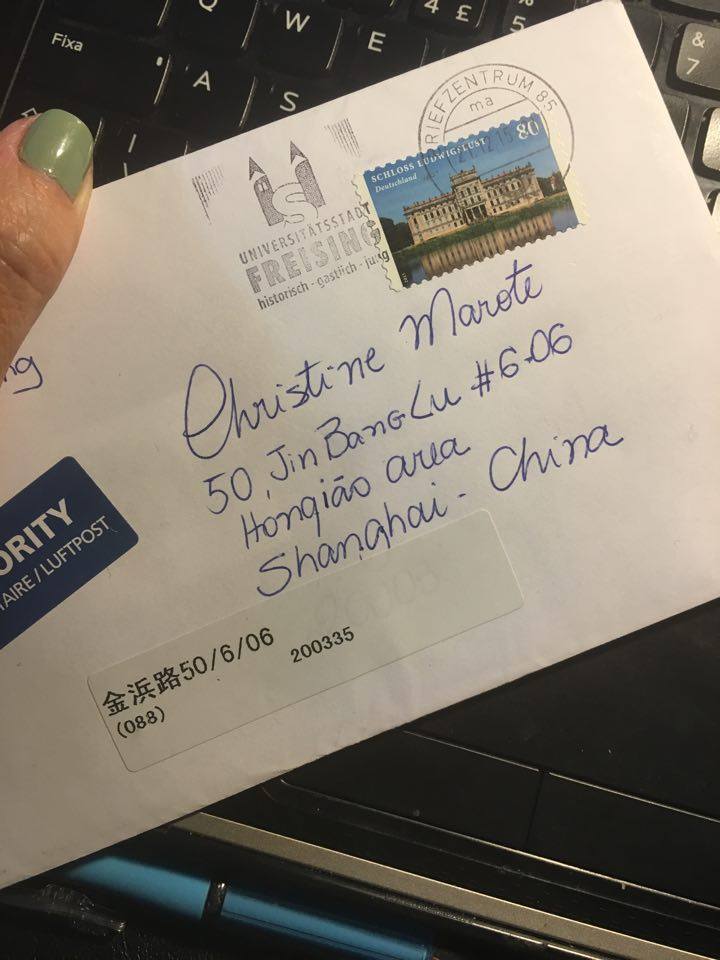 Fixa
Q
W
E
A
S
4 £
%
5
&
7
BRIEFZENTRUM 85
ma
80
SCHLOSS LUDWIGSLUST
Deutschland
UNIVERSITÄTSSTADT
FREISING
historisch - gastlich - jung
ng
Christine Marote
50, Jin Bang Lu #6-06
Honqião area
Shanghai - China
ORITY
TAIRE / LUFTPOST
金浜路50/6/06
200335
(088)